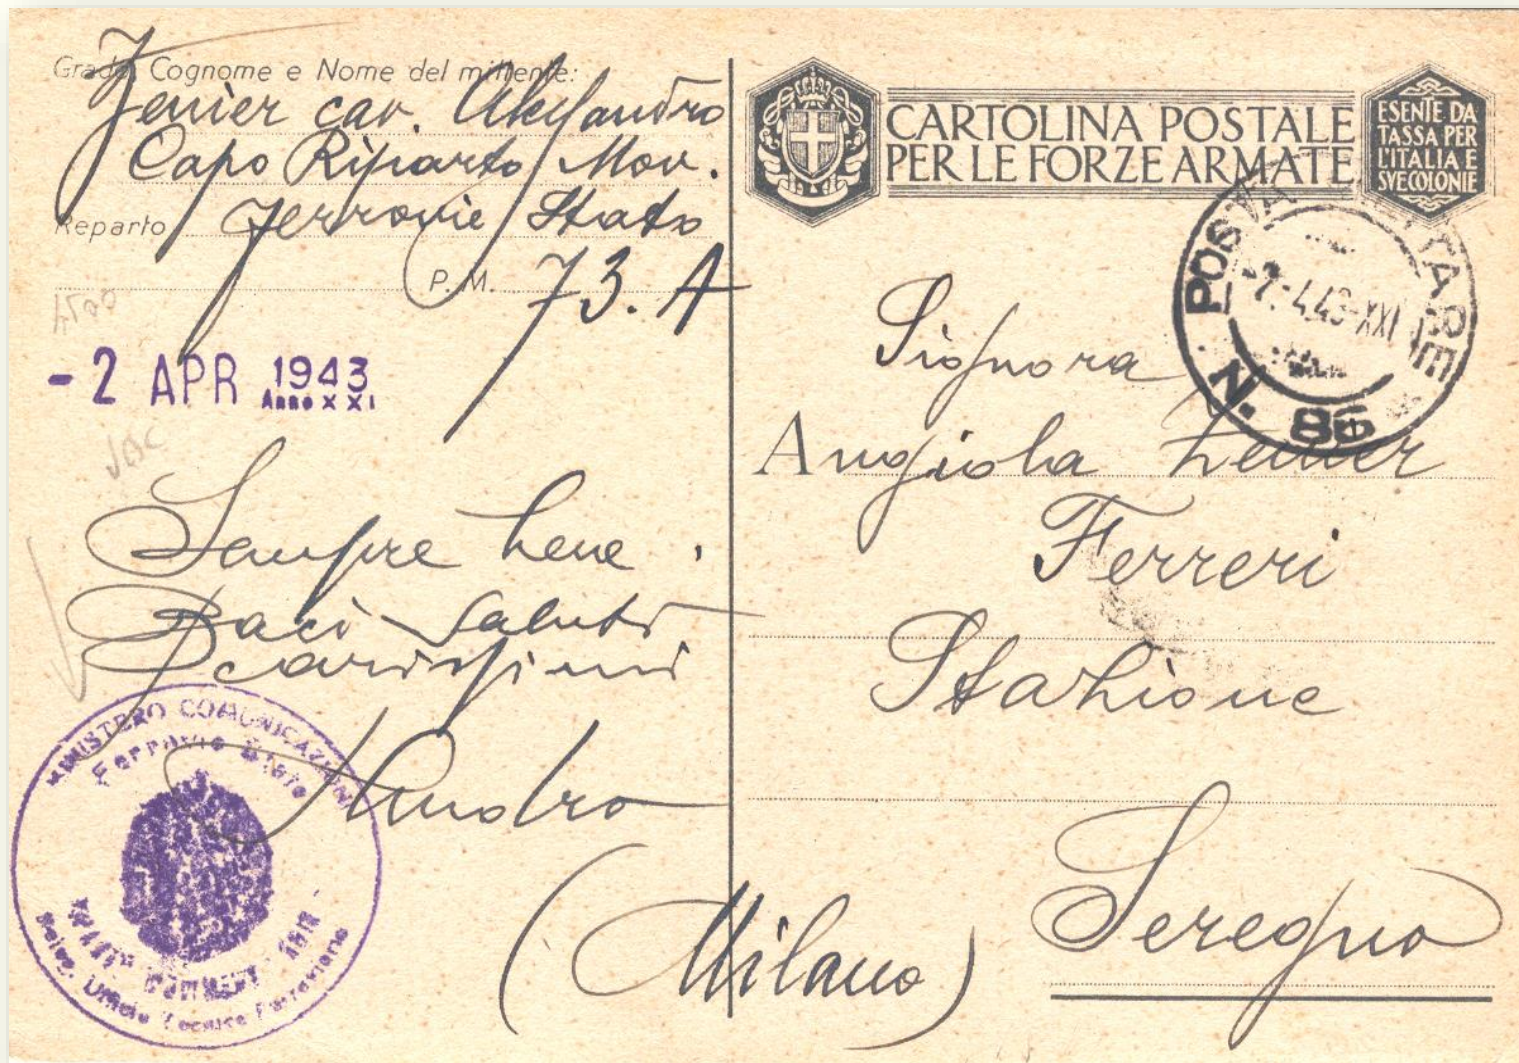 Grado, Cognome e Nome del mittente:
Zenier cav. Alessandro
Capo Riparto Mov.
Reparto Ferrovie Stato
P. M. 73. A
- 2 APR 1943
Anno XXI
Sempre bene.
Baci saluti
carissimi
Sandro
MINISTERO COMUNICAZIONI
Ferrovie Stato
Ufficio Tecnico Ferroviario
CARTOLINA POSTALE
PER LE FORZE ARMATE
ESENTE DA
TASSA PER
L'ITALIA E
SVE COLONIE
POSTA MILITARE
-2.4.43-XXI
N. 86
Signora
Angiola Zenier
Ferreri
Stazione
Seregno
(Milano)